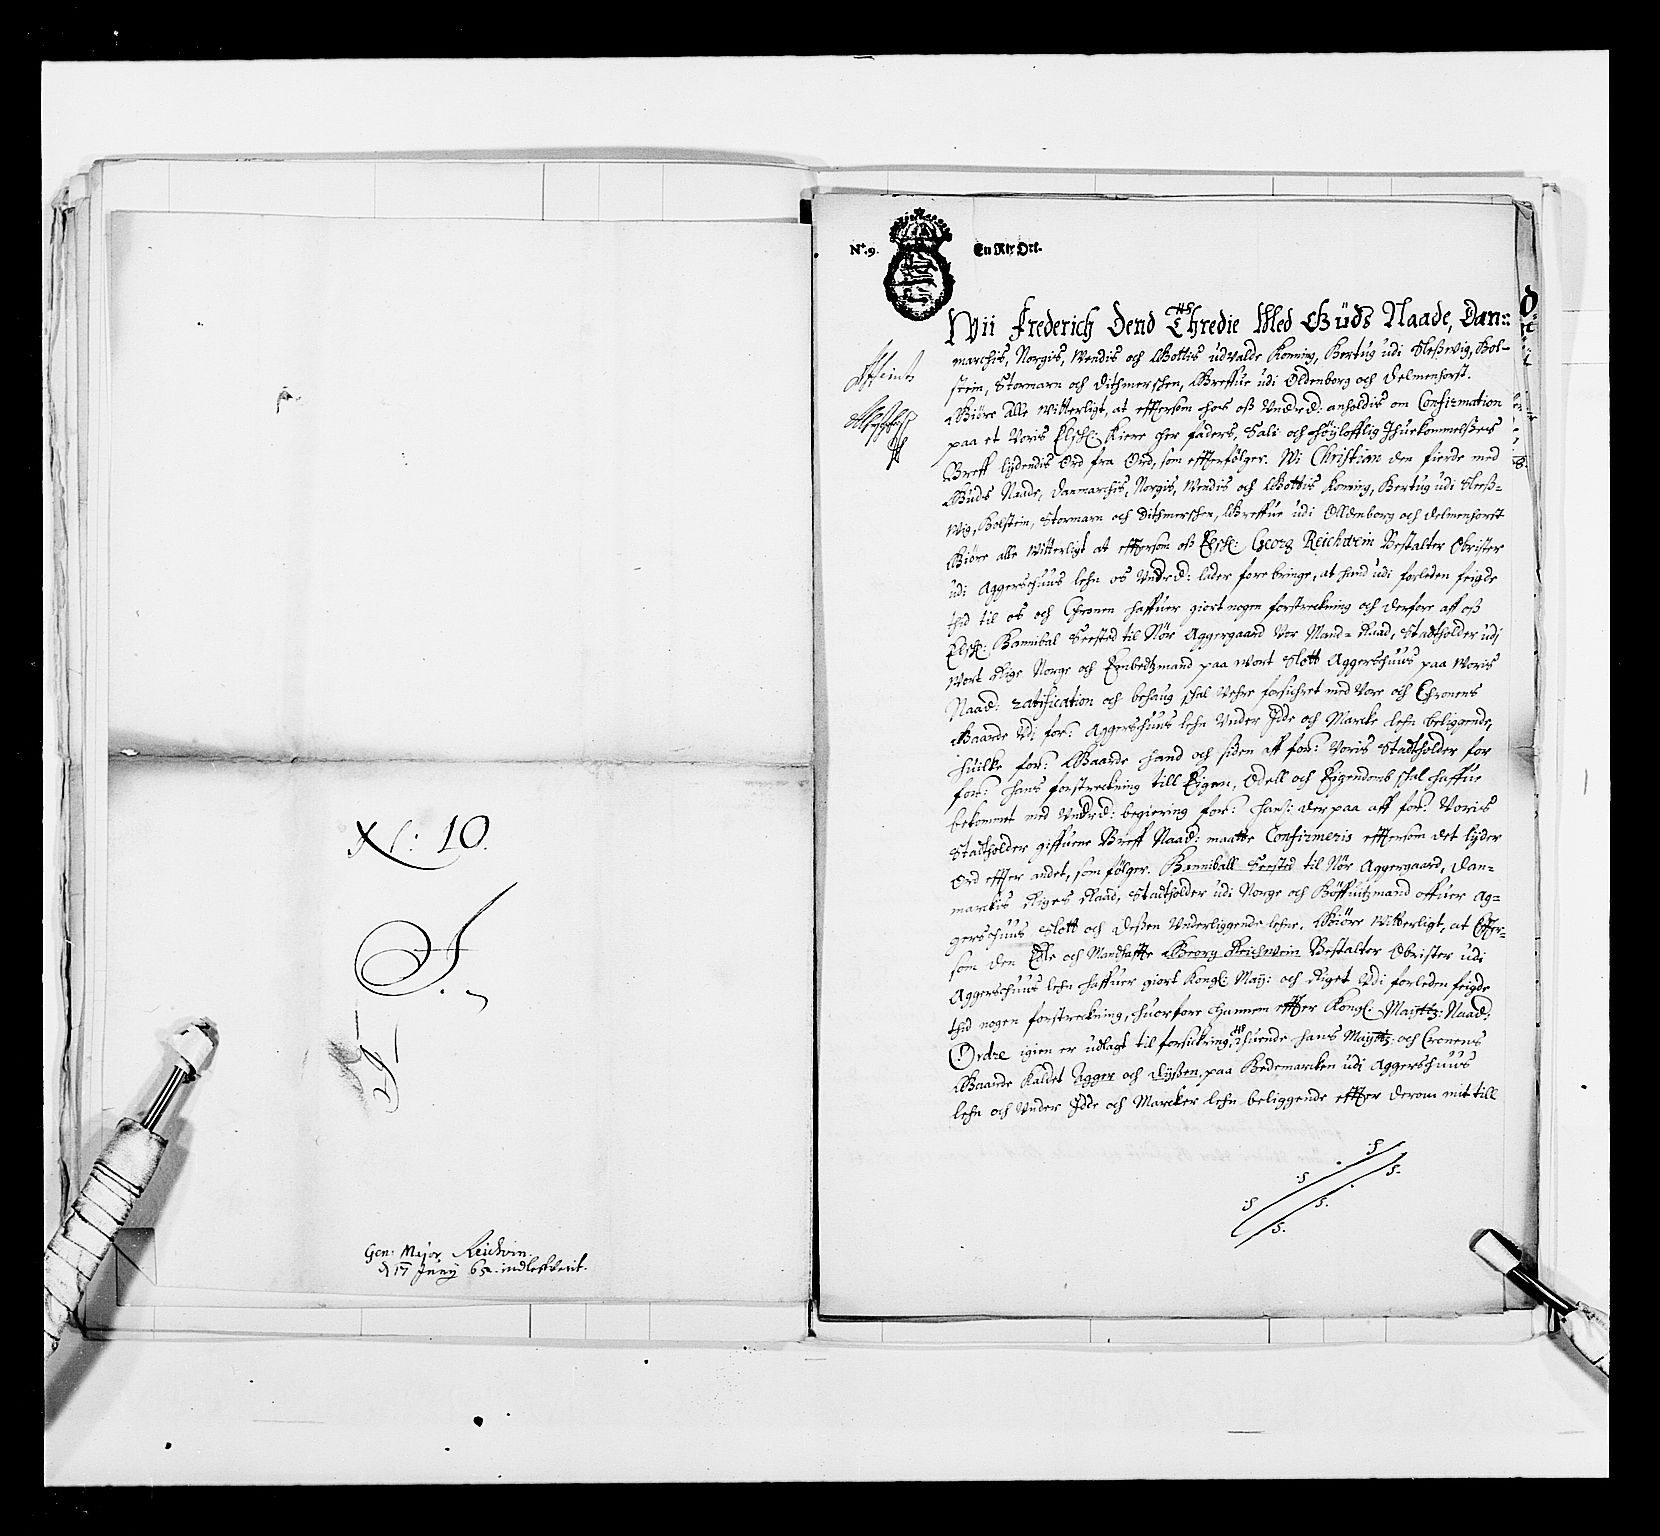 N: 10.
J.
Gen: Major Reichvin.
d 17 Junij 65. indlefverit.
N.º 9. En Rix Ort.
Wii Frederich Dend Thredie Med Guds Naade, Dan=
marckis, Norgis, Wendis och Gottis udvalde Koning, Hertug udi Sleßevig, Hol-
stein, Stormarn och Dithmerschen, Greffue udi Oldenborg och Delmenhorst.
Giøre Alle Witterligt, at effttersom hos oß Underd: anholdis om Confirmation
paa et Voris Elsch: Kiere Her Faders, Sali och Høylofflig Ihuekommelßes
Breff lydendis Ord fra Ord, som effterfølger. Wi Christian den fierde med
Guds Naade, Danmarckis, Norgis, Wendis och Gottis Koning, Hertug udi Sleß=
wig, Holstein, Stormarn och Dithmerschen, Greffue udi Olldenborg och Delmenhorst
Giøre alle Witterligt at efftersom oß Elsch: Georg Reichwein Bestalter Obrister
udi Aggershuus lehn os Underd: lader forebringe, at hand udi forleden feigde
thid til os och Chronen haffuer giort nogen forstreckning och derfore aff oß
Elsch: Hannibal Seested til Nør Aggergaard Vor Mand= Raad, Stadtholder udj
Wort Rige Norge och Embedtzmand paa Wort Slott Aggershuus paa Woris
Naad: ratification och behaug schal Vehre forsichret med Vore och Chronens
Gaarde Udi for: Aggershuus lehn Under Idde och Marcke lehn beliggende,
huilke for: Gaarde hand och siden aff for: Voris Stadtholder for
for: hans forstreckning till Eigen, Odell och Eigendomb schal haffue
bekommet med Underd: begiering for: hans: derpaa aff for: Voris
Stadtholder giffuene Breff Naad: maatte Confirmeris efftersom det lyder
Ord effter andet, som følger. Hanniball Seested til Nør Aggergaard, Dan=
marckis Riges Raad, Stadtholder udi Norge och Høffuitzmand offuer Ag=
gershuus Slott och deßen Underliggende lehne, Giøre Witterligt, at Effter=
som den Edle och Mandhaffte Georg Reichwein Bestalter Obrister udi
Aggershuus lehn haffuer giort Kongl: May: och Riget Udi forleden feigde
thid nogen forstreckning, huorfore hannem effter Kongl: Maytt: Naad:
Ordre igien er udlagt til forsickring, thuende hans Maytt: och Cronens
Gaarde Kaldet Agger och Dyßen, paa Hedemarcken udi Aggershuus
lehn och Under Idde och Marcker lehn beliggende effter derom mit till